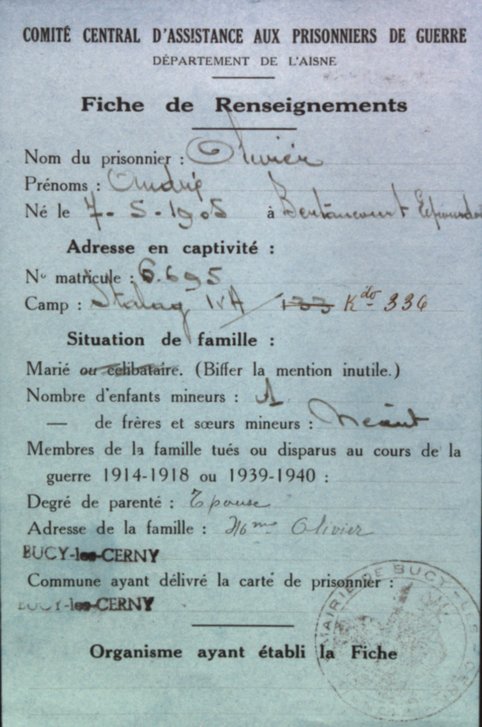 COMITÉ CENTRAL D'ASSISTANCE AUX PRISONNIERS DE GUERRE
DÉPARTEMENT DE L'AISNE
Fiche de Renseignements
Nom du prisonnier : Olivier
Prénoms : André
Né le 7-5-1905 à Bertaucourt Epourdon
Adresse en captivité :
No matricule : 6.695
Camp : Stalag IVA / 133 Kdo 336
Situation de famille :
Marié ou célibataire. (Biffer la mention inutile.)
Nombre d'enfants mineurs : 1
— de frères et sœurs mineurs : Néant
Membres de la famille tués ou disparus au cours de la
guerre 1914-1918 ou 1939-1940 :
Degré de parenté : Epouse
Adresse de la famille : Mme Olivier
BUCY-les-CERNY
Commune ayant délivré la carte de prisonnier :
BUCY-les-CERNY
MAIRIE DE BUCY-L
Organisme ayant établi la Fiche